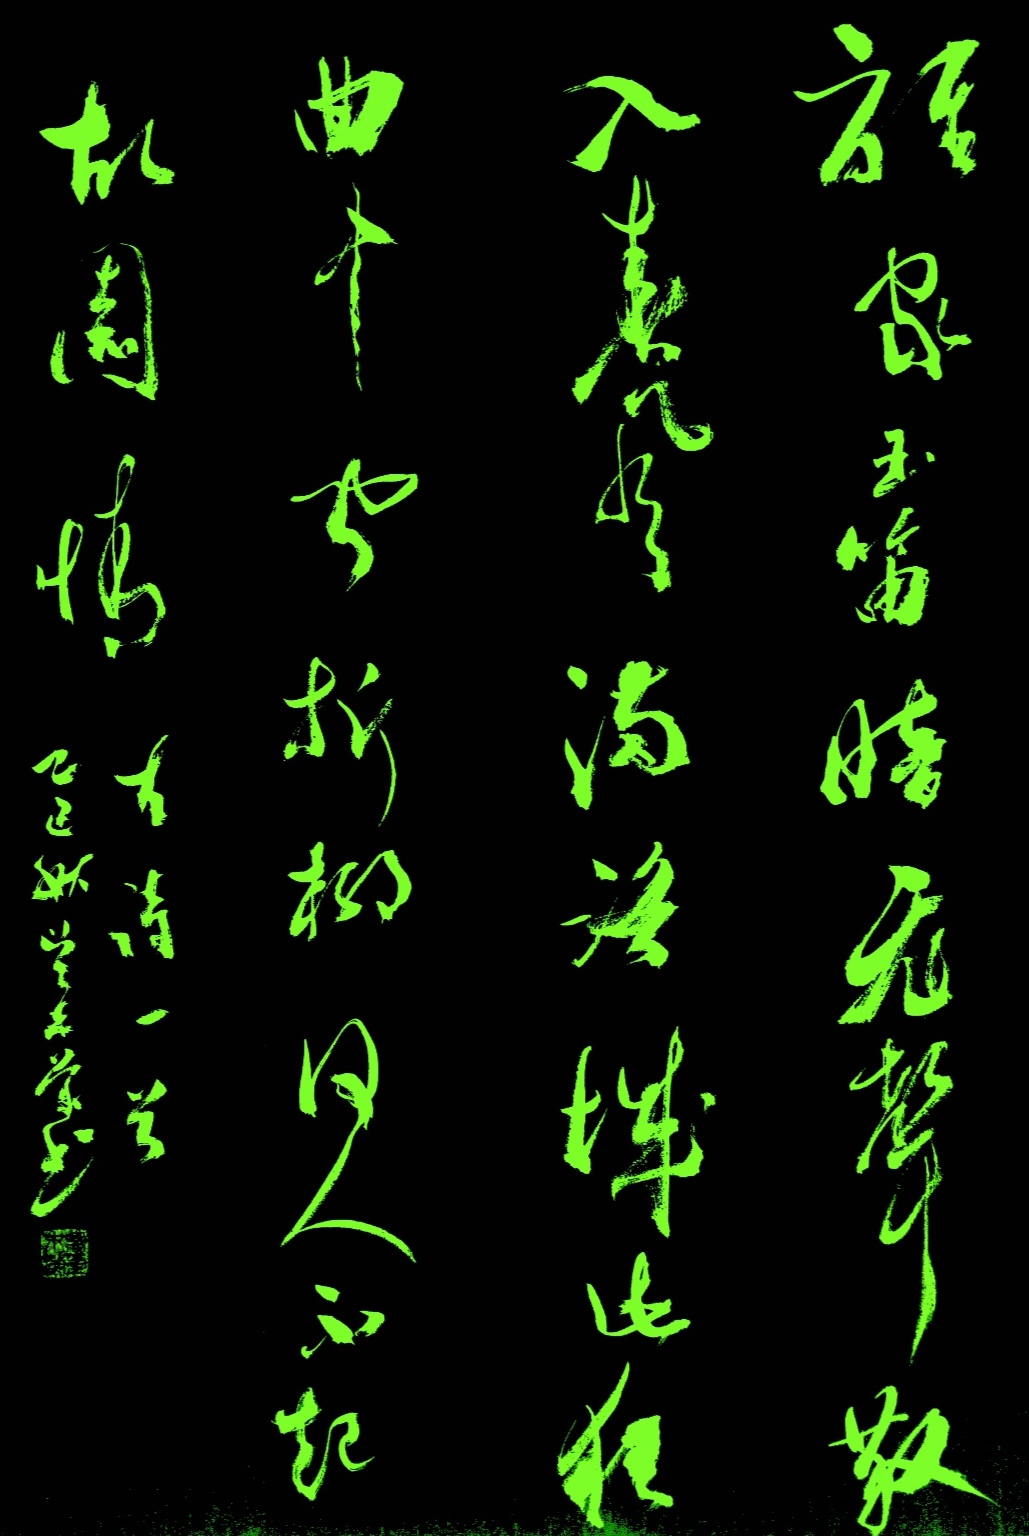 誰家玉笛暗飛聲散
入春風滿洛城此夜
曲中聞折柳何人不起
故園情
古詩一首
乙巳秋